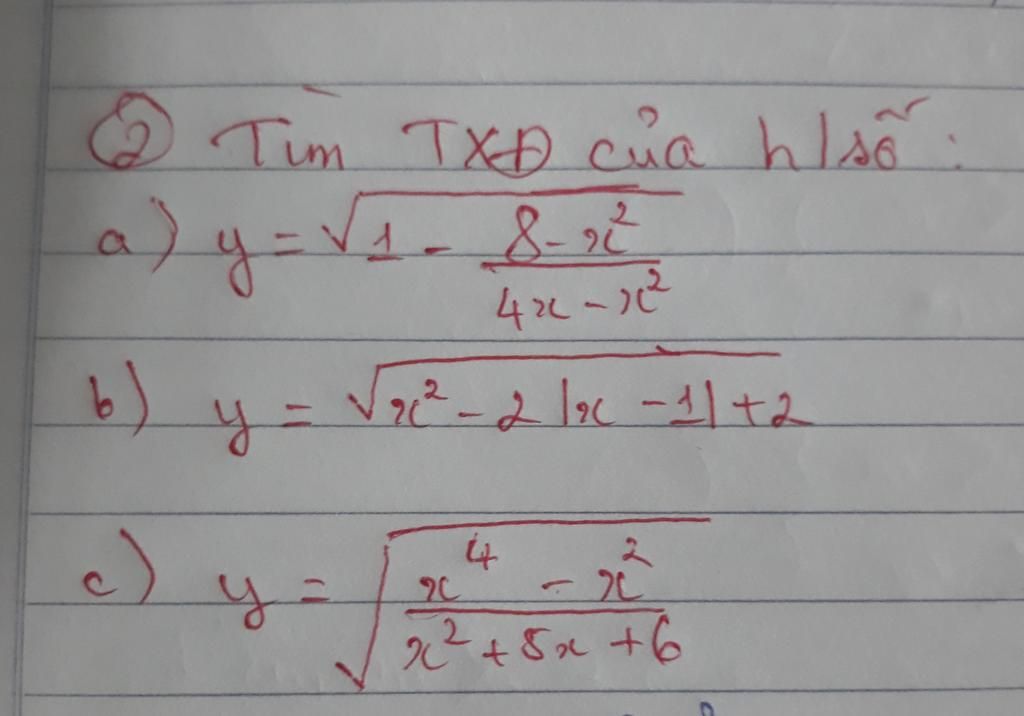 ② Tìm TXĐ của h/số:
a) y = √(1 - (8 - x²)/(4x - x²))
b) y = √(x² - 2|x - 1| + 2)
c) y = √((x⁴ - x²)/(x² + 5x + 6))